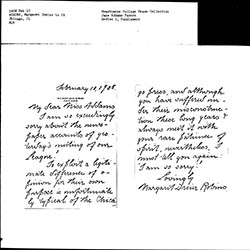 1908 Feb 10
Swarthmore College Peace Collection
Jane Addams Papers
Series 1, Supplement
Chicago, IL
ALS
February 10, 1908.
My dear Miss Addams
I am so exceedingly
sorry about the news-
paper accounts of yes-
terday's meeting of our
League.
To exploit a legiti-
mate difference of o-
pinion for their own
purpose is unfortunate-
ly typical of the Chica
go press, and although
you have suffered un-
der their misconstruc-
tion these long years &
always met it with
your rare patience of
spirit, nevertheless, I
must tell you again:
I am so sorry!
Lovingly
Margaret Dreier Robins